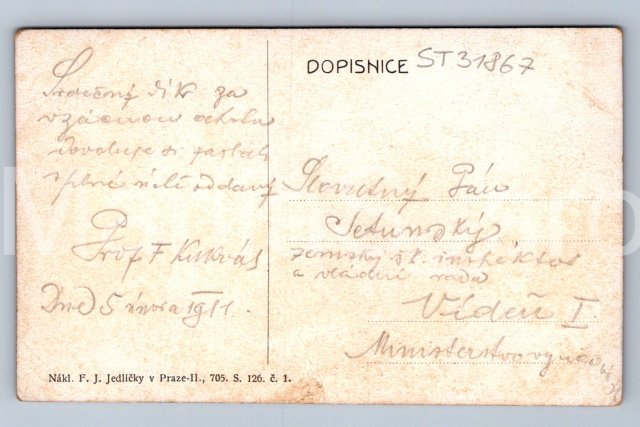 DOPISNICE ST31867
Srdečný dík za
vzácnou ochotu
dovoluje si
úplné úctě oddaný
Prof F
Dne 5 února 1911.
Slovutný Pán
zemský šk. inspektor
a vládní rada
Vídeň I.
Ministerstvo
Nákl. F. J. Jedličky v Praze-II., 705. S. 126. č. 1.